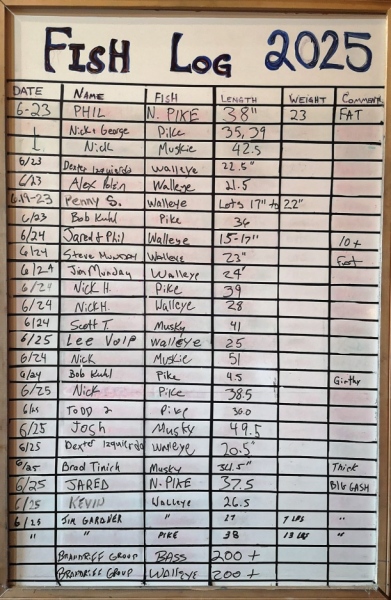 FISH LOG 2025
DATE NAME FISH LENGTH WEIGHT COMMENT
6-23 PHIL N. PIKE 38" 23 FAT
Nick & George Pike 35, 29
Nick Muskie 42.5
6/23 Dexter Izquierdo Walleye 22.5"
6/23 Alex Walleye 21.5
Penny S. Walleye Lots 17" to 22"
6/23 Bob Kuhl Pike 36
6/24 Jared & Phil Walleye 15-17" 10+
6/24 Steve Munday Walleye 23" Fat
6/24 Jim Munday Walleye 24"
6/24 Nick H. Pike 39
6/24 Nick H. Walleye 28
6/24 Scott T. Musky 41
6/25 Lee Volp Walleye 25
6/24 Nick Muskie 51
6/24 Bob Kuhl Pike 4.5 Girthy
6/25 Nick Pike 38.5
6/25 TODD Pike 36.0
6/25 Josh Musky 49.5
6/25 Dexter Izquierdo Walleye 20.5"
6/25 Brad Tinich Musky Thick
6/25 JARED N. PIKE 37.5 BIG GASH
6/25 KEVIN Walleye 26.5
6/25 JIM GARDNER " 27 7 LBS "
" " PIKE 38 13 LBS "
GROUP BASS 200 +
GROUP WALLEYE 200 +